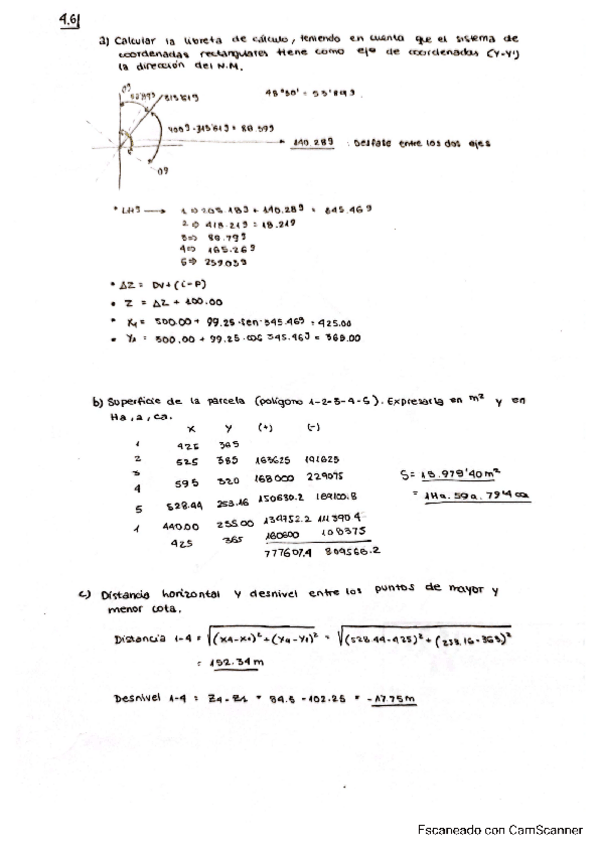 4.6
a) Calcular la libreta de cálculo, teniendo en cuenta que el sistema de
coordenadas rectangulares tiene como eje de coordenadas (Y-Y')
la dirección del N.M.
48°30' = 53'89g
315'61g
400g - 315'61g =
140.28g : Desfase entre los dos ejes
* LHg → 1 ⇒ 205.18g + 140.28g = 345.46g
2 ⇒ 418.21g = 18.21g
3 ⇒ 80.79g
4 ⇒ 165.26g
5 ⇒
* ΔZ = DV + (i-P)
* Z = ΔZ + 100.00
* X1 = 500.00 + 99.25 · sen 345.46g = 425.00
* Y1 = 300.00 + 99.25 · cos 345.46g = 365.00
b) Superficie de la parcela (polígono 1-2-3-4-5). Expresarla en m² y en
Ha, a, ca.
X Y (+) (-)
1 425 365
2 525 385 163625 191625
3 595 320 168000 229075
4 528.44 150680.2 169100.8
5 440.00 255.00 134752.2 111390.4
1 425 365 160600 108375
777607.4 809566.2
S = 15.979'40 m²
= 1Ha. 59a. 79'4 ca
c) Distancia horizontal y desnivel entre los puntos de mayor y
menor cota.
Distancia 1-4 = √(X4-X1)² + (Y4-Y1)² = √(528.44-425)² + (253.16-365)²
= 152.34m
Desnivel 1-4 = Z4 - Z1 = 84.5 - 102.25 = -17.75m
Escaneado con CamScanner